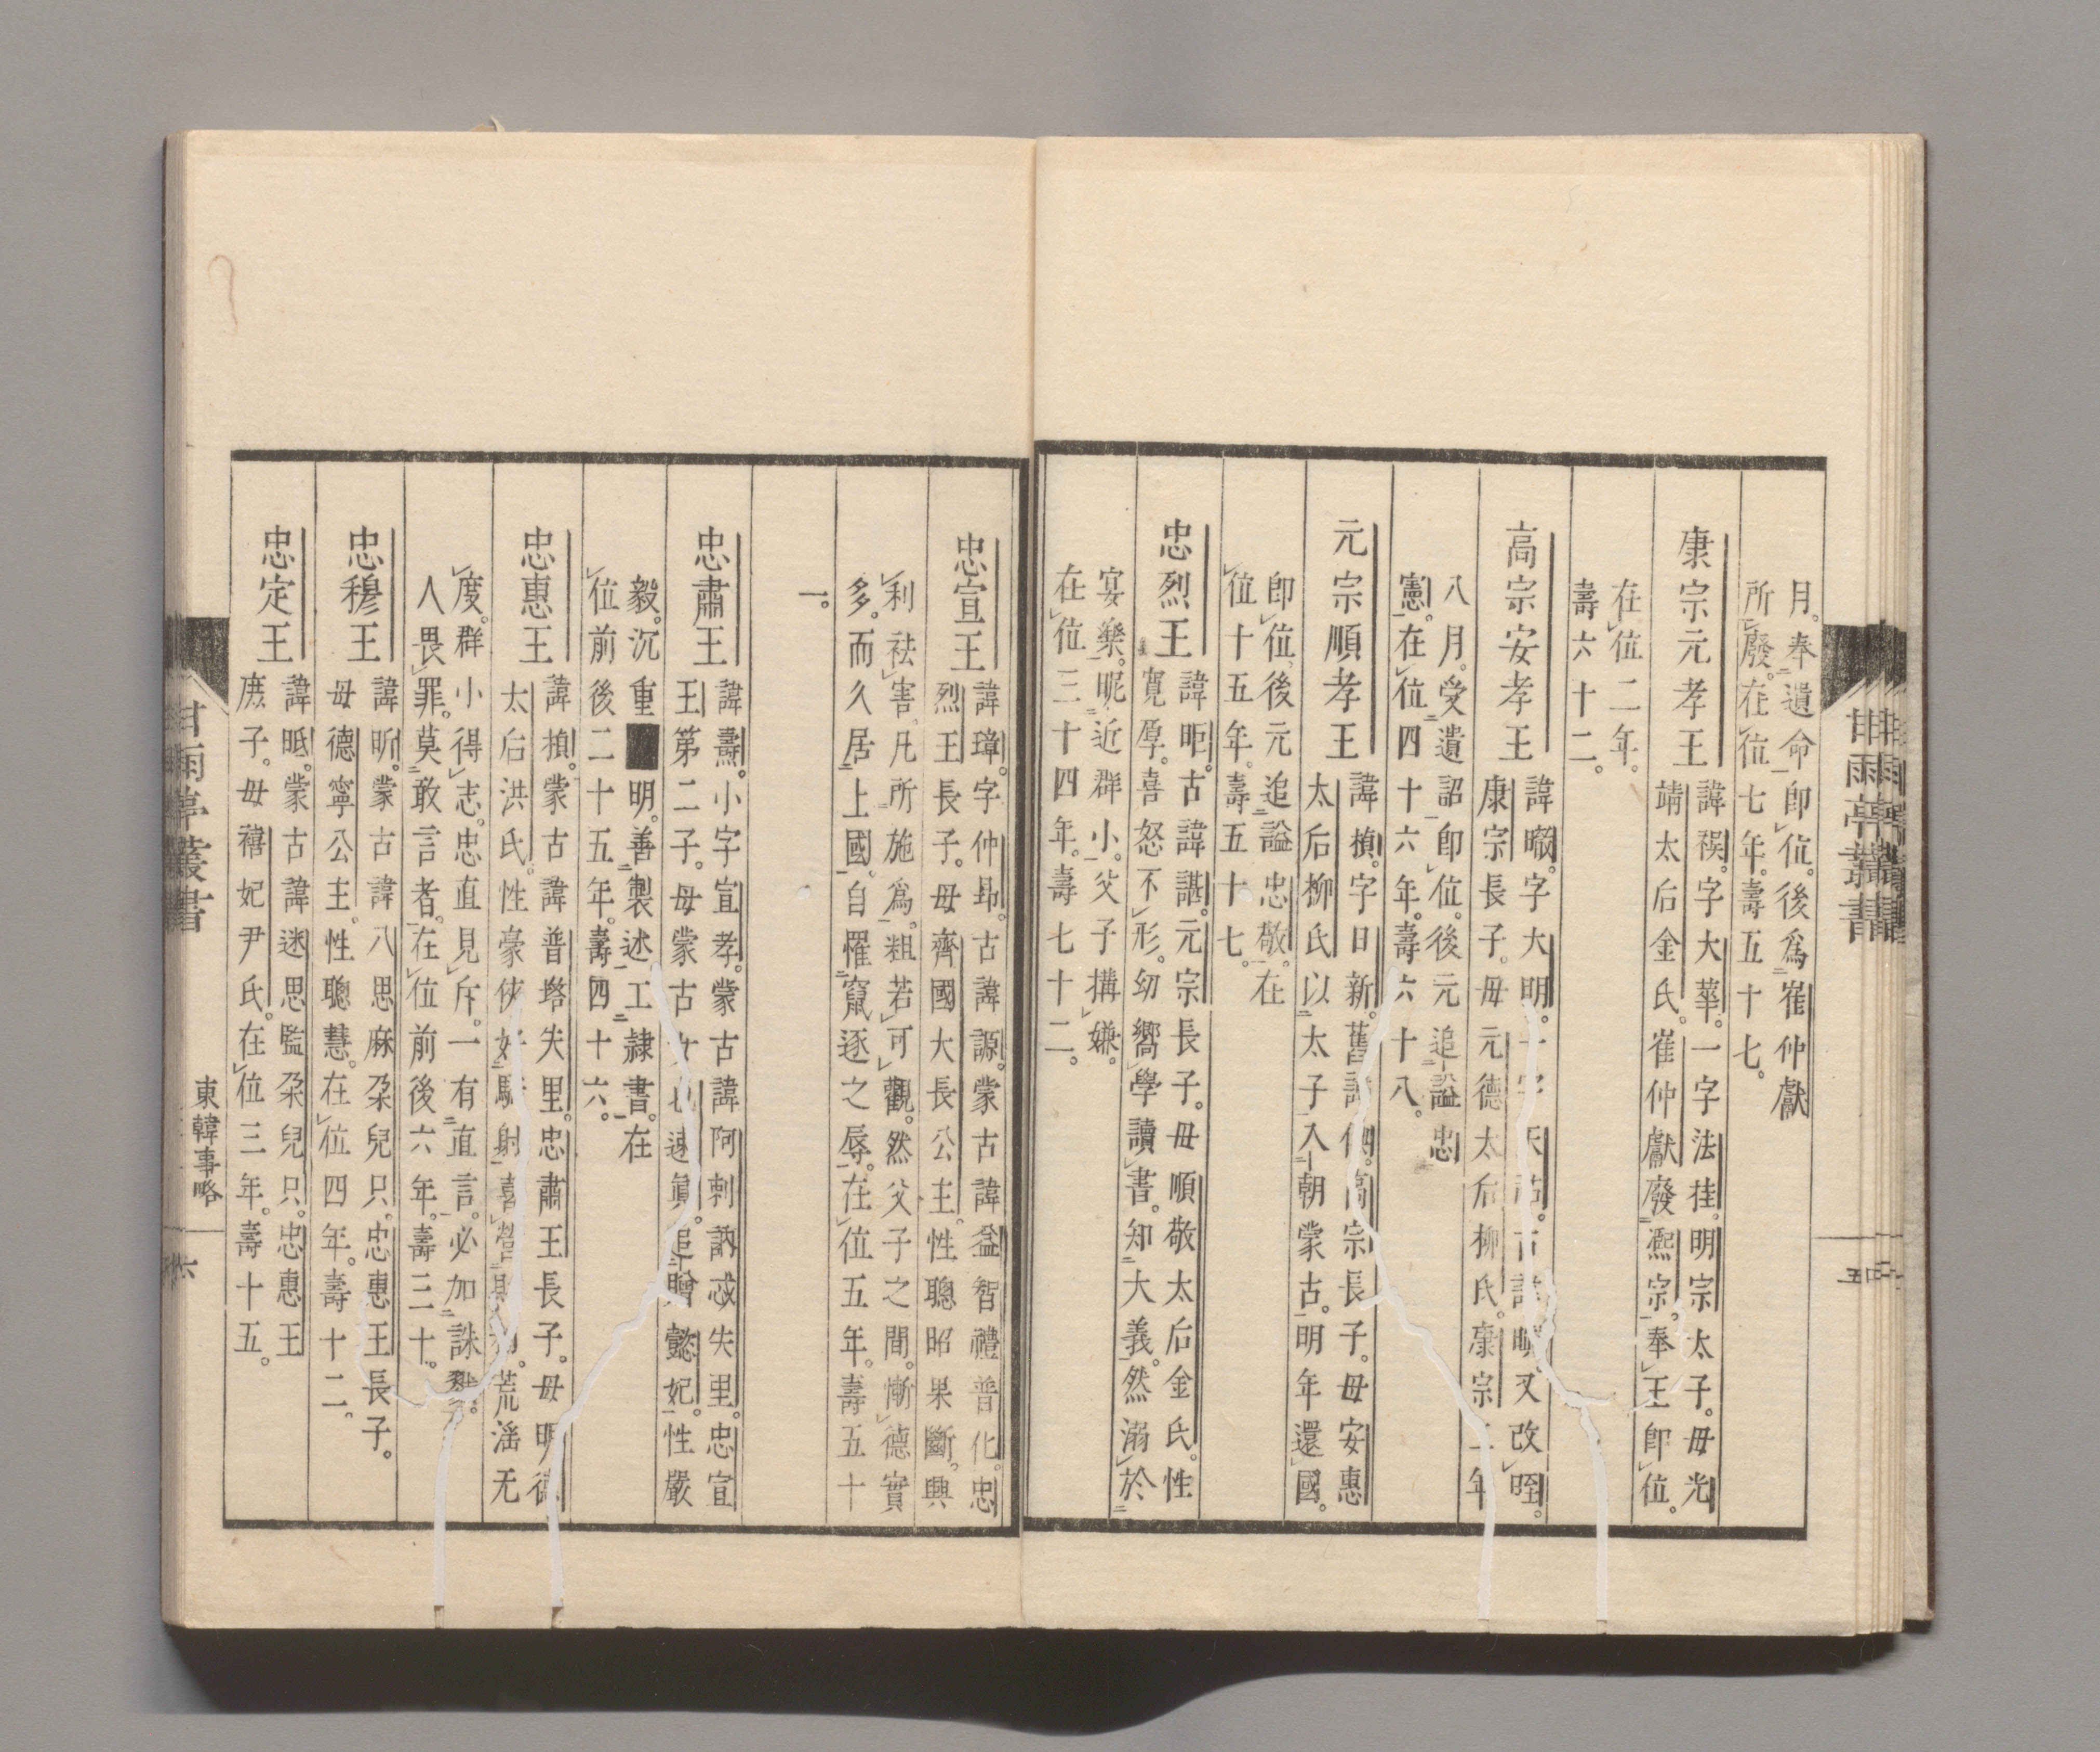 月。奉遺命即位。後爲崔仲獻
所廢。在位七年。壽五十七。
康宗元孝王
諱祦。字大華。一字法挂。明宗太子。母光
靖太后金氏。崔仲獻廢熙宗。奉王即位。
在位二年。
壽六十二。
高宗安孝王
諱㬚。字大明。一字天祐。古諱瞋。又改㫛。
康宗長子。母元德太后柳氏。康宗二年
八月。受遺詔即位。後元追謚忠
憲。在位四十六年。壽六十八。
元宗順孝王
諱禃。字日新。舊諱倎。高宗長子。母安惠
太后柳氏。以太子入朝蒙古。明年還國。
即位。後元追謚忠敬。在
位十五年。壽五十七。
忠烈王
諱昛。古諱諶。元宗長子。母順敬太后金氏。性
寬厚。喜怒不形。幼嚮學讀書。知大義。然溺於
宴樂。昵近群小。父子搆嫌。
在位三十四年。壽七十二。
忠宣王
諱璋。字仲昻。古諱謜。蒙古諱益智禮普化。忠
烈王長子。母齊國大長公主。性聰昭果斷。興
利祛害。凡所施爲。粗若可觀。然父子之間。慚德實
多。而久居上國。自罹竄逐之辱。在位五年。壽五十
一。
忠肅王
諱燾。小字宜孝。蒙古諱阿剌訥忒失里。忠宣
王第二子。母蒙古女也速眞。追贈懿妃。性嚴
毅。沉重■明。善製述。工隷書。在
位前後二十五年。壽四十六。
忠惠王
諱禎。蒙古諱普塔失里。忠肅王長子。母明德
太后洪氏。性豪俠。好騎射。喜營財利。荒滛无
度。群小得志。忠直見斥。一有直言。必加誅殺。
人畏罪。莫敢言者。在位前後六年。壽三十。
忠穆王
諱昕。蒙古諱八思麻朶兒只。忠惠王長子。
母德寧公主。性聰慧。在位四年。壽十二。
忠定王
諱㫝。蒙古諱迷思監朶兒只。忠惠王
庶子。母禧妃尹氏。在位三年。壽十五。
甘雨亭叢書
五
甘雨亭叢書
東韓事略
六